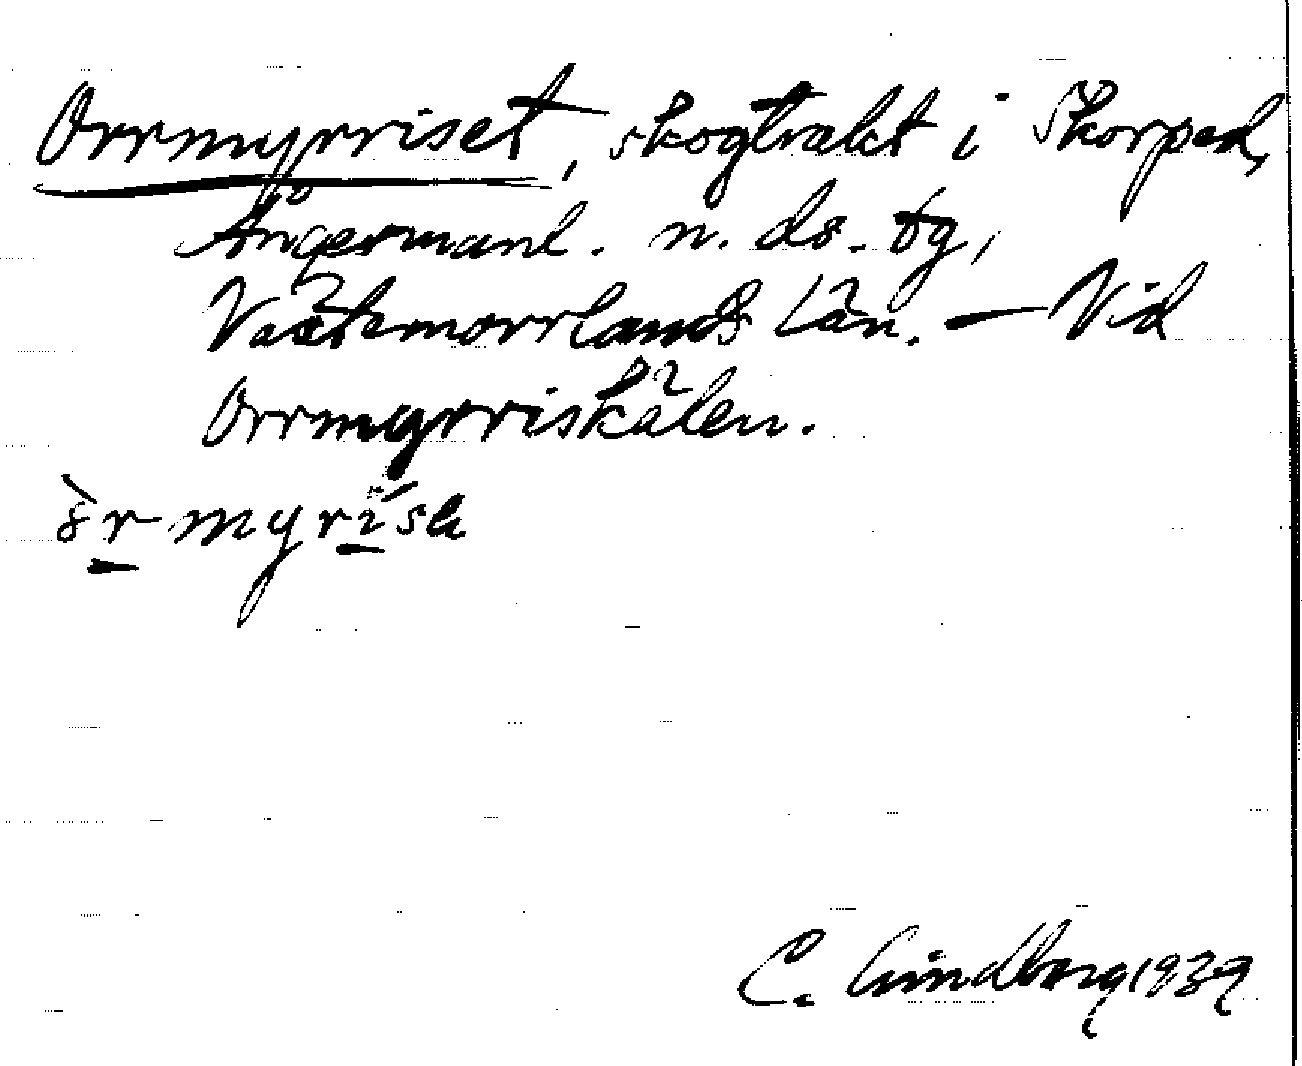 Orrmyrriset, skogtrakt i Skorped,
Ångermanl. n. ds. tg,
Västernorrlands län. — Vid
Orrmyrriskälen.
C. Lindberg 1939